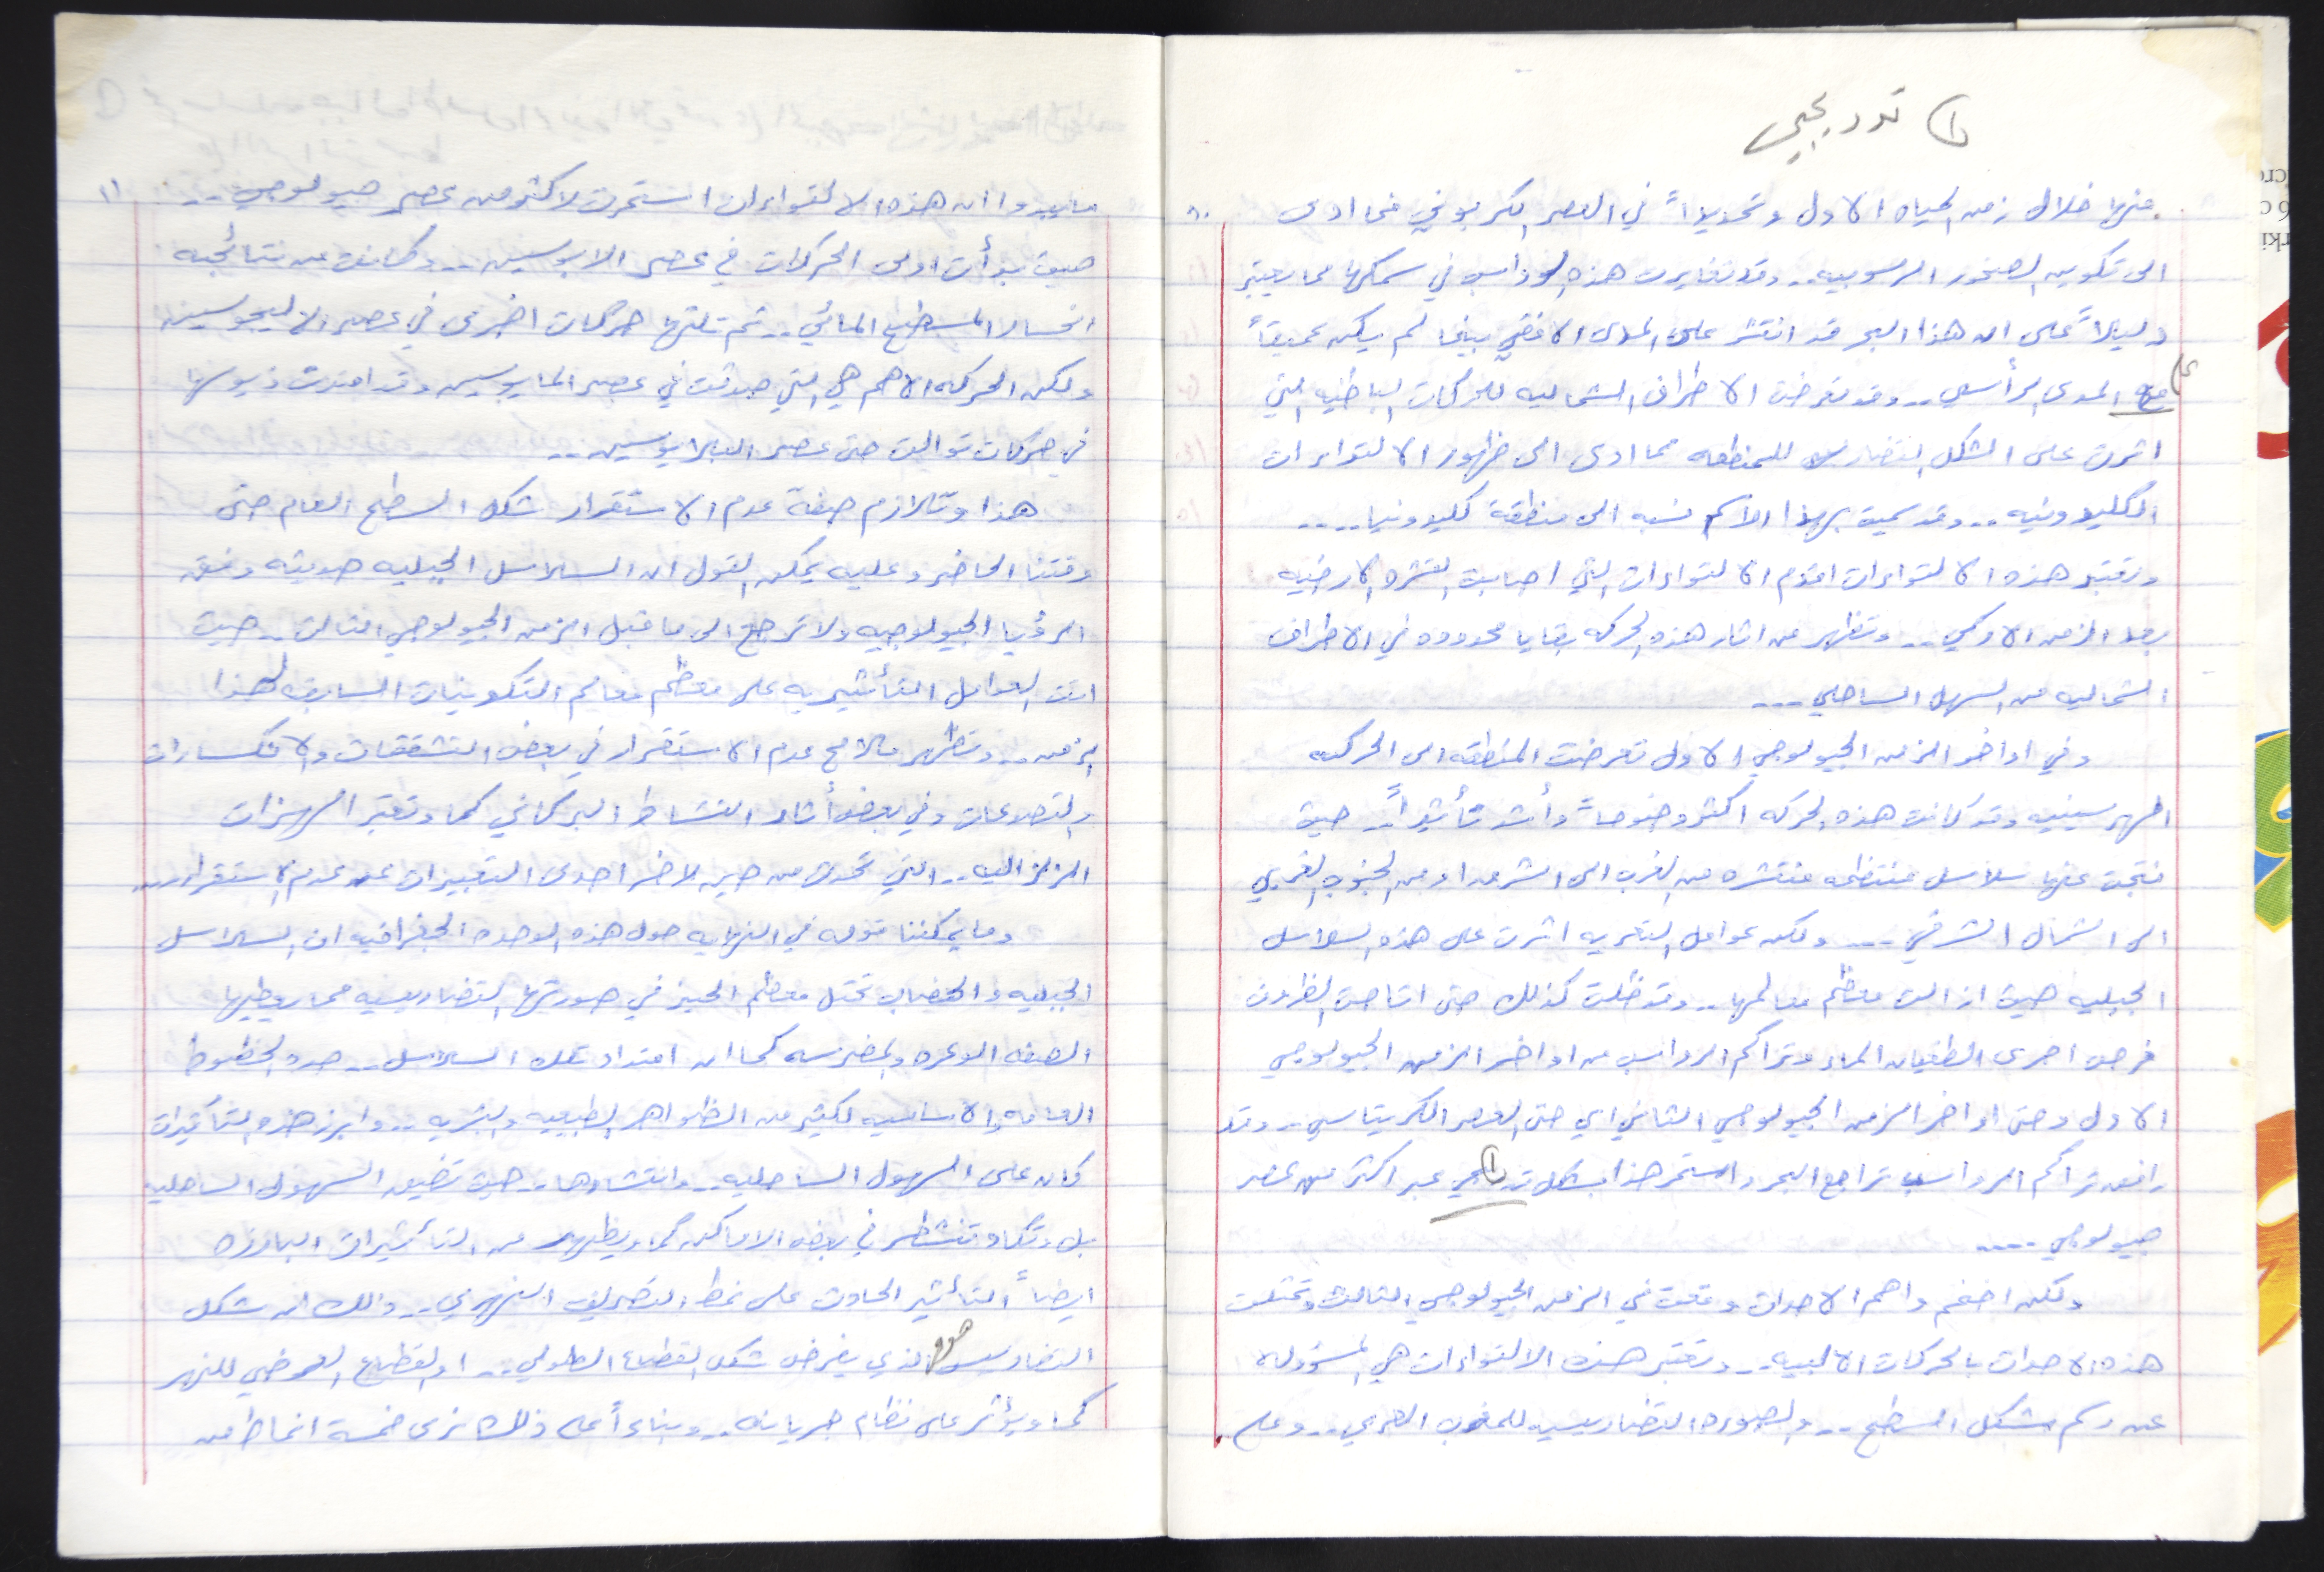 ١) تدريجي
منها خلال زمن الحياه الاول وتحديداً في العصر الكربوني مما ادى
١٠
الى تكوين الصخور الرسوبيه .. وقد تغايرت هذه الرواسب في سمكها مما يعتبر
دليلاً على ان هذا البحر قد انتشر على المدى الافقي بينما لم يكن عميقاً
على المدى الرأسي .. وقد تعرضت الاطراف الشماليه للحركات الباطنيه التي
اثرت على الشكل التضاريسي للمنطقه مما ادى الى ظهور الالتواءات
الكليدونيه .. وقد سميت بهذا الاسم نسبه الى منطقة كليدونيا ....
وتعتبر هذه الالتواءات اقدم الالتواءات التي اصابت القشره الارضيه
بعد الزمن الاركي .. وتظهر من اثار هذه الحركه بقايا محدوده في الاطراف
الشماليه من السهل الساحلي ...
وفي اواخر الزمن الجيولوجي الاول تعرضت المنطقه الى الحركه
الهرسينيه وقد كانت هذه الحركه اكثر وضوحاً وأشد تأثيراً .. حيث
نتجت عنها سلاسل منتظمه منتشره من الغرب الى الشرق او من الجنوب الغربي
الى الشمال الشرقي ... ولكن عوامل التعريه اثرت على هذه السلاسل
الجبليه حيث ازالت معظم معالمها .. وقد ظلت كذلك حتى اتاحت الظروف
فرص اخرى لطغيان الماء وتراكم الرواسب من اواخر الزمن الجيولوجي
الاول وحتى اواخر الزمن الجيولوجي الثاني اي حتى العصر الكريتاسي .. وقد
رافق تراكم الرواسب تراجع البحر واستمر هذا بشكل تدريجي (١) عبر اكثر من عصر
جيولوجي ....
ولكن اضخم واهم الاحداث وقعت في الزمن الجيولوجي الثالث وتمثلت
هذه الاحداث بالحركات الالبيه .. وتعتبر هذه الالتواءات هي المسؤوله
عن رسم شكل السطح .. والصوره التضاريسيه للمغرب العربي .. وعلى
١١
ما يبدوا ان هذه الالتواءات استمرت لاكثر من عصر جيولوجي ..
حيث بدأت اولى الحركات في عصر الايوسين .. وكانت من نتائجه
انحسار المسطح المائي .. ثم تلتها حركات اخرى في عصر الاليجوسين
ولكن الحركه الاهم هي التي حدثت في عصر المايوسين وقد امتدت ذيولها
في حركات توالت حتى عصر البلايوسين ..
هذا وتلازم صفة عدم الاستقرار شكل السطح العام حتى
وقتنا الحاضر وعليه يمكن القول ان السلاسل الجبليه حديثه وفق
الرؤيا الجيولوجيه ولا ترجع الى ما قبل الزمن الجيولوجي الثالث .. حيث
اتت العوامل التأثيريه على معظم معالم التكوينات السابقه لهذا
الزمن .. وتظهر ملامح عدم الاستقرار في بعض التشققات والانكسارات
والتصدعات وفي بعض أثار النشاط البركاني كما وتعتبر الهزات
الزلزاليه .. التي تحدث من حين لاخر احدى التعبيرات عن عدم الاستقرار ...
وما يمكننا قوله في النهايه حول هذه الوحده الجغرافيه ان السلاسل
الجبليه والهضاب تحتل معظم الحيز في صورتها التضاريسيه مما يعطيها
الصفه الوعره والمضرسه كما ان امتداد تلك السلاسل .. حدد الخطوط
العامه والاساسيه لكثير من الظواهر الطبيعيه والبشريه .. وابرز هذه التأثيرات
كان على السهول الساحليه .. وانتشارها .. حيث تضيق السهول الساحليه
بل وتكاد تنشطر في بعض الاماكن كما ويظهر من التأثيرات البارزه
ايضاً التأثير الحادث على نمط التصريف النهري .. ذلك ان شكل
التضاريس هو الذي يفرض شكل القطاع الطولي .. او القطاع العرضي للنهر
كما ويؤثر على نظام جريانه .. وبناءاً على ذلك نرى خمسة انماط من